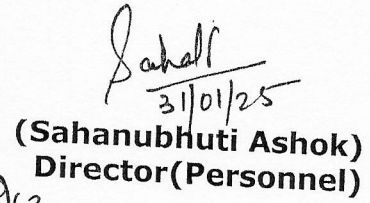 31/01/25
(Sahanubhuti Ashok)
Director(Personnel)